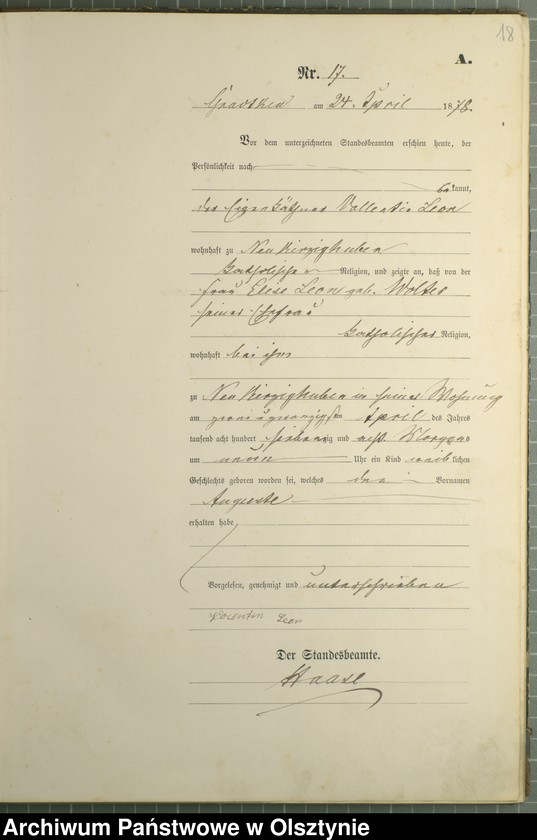 18
A.
Nr. 17.
am 24. April 1878.
Vor dem unterzeichneten Standesbeamten erschien heute, der
Persönlichkeit nach
bekannt,
der Eigenkäthner Vallentin Leon
wohnhaft zu Neu Vierzighuben
katholischer Religion, und zeigte an, daß von der
Frau Elise Leon geb. Wolter
seiner Ehefrau
katholischer Religion,
wohnhaft bei ihm
zu Neu Vierzighuben in seiner Wohnung
am zweiundzwanzigsten April des Jahres
tausend acht hundert siebenzig und acht Morgens
um neun Uhr ein Kind weiblichen
Geschlechts geboren worden sei, welches den Vornamen
Auguste
erhalten habe
Vorgelesen, genehmigt und unterschrieben
Leon
Der Standesbeamte.
Haase
Archiwum Państwowe w Olsztynie